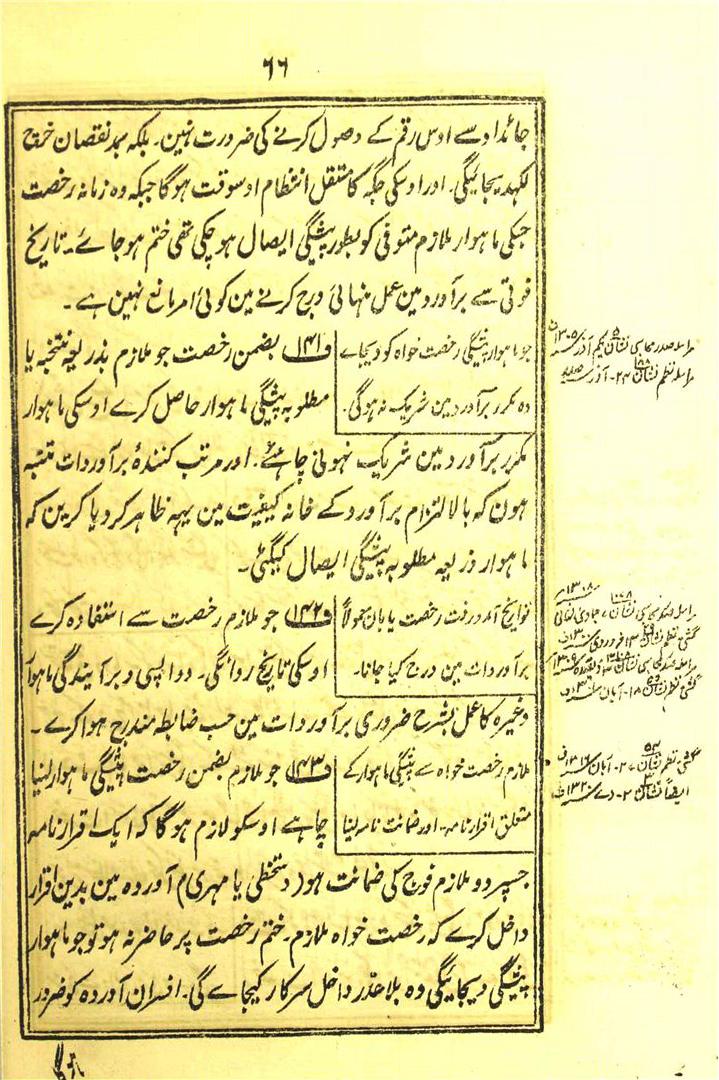 ٦٦
جائداد سے اوس رقم کے وصول کرنے کی ضرورت نہین۔ بلکہ بمد نقصان خرچ
لکہدیجائیگی۔ اور اوسکی جگہ کا مستقل انتظام اوسوقت ہوگا جبکہ وہ زمانہ رخصت
جسکی ماہوار ملازم متوفی کو بطور پیشگی ایصال ہوچکی تھی ختم ہوجائے۔ تاریخ
فوتی سے برآورد مین عمل منہائی درج کرنے مین کوئی امر مانع نہین ہے۔
جو ماہوار پیشگی رخصت خواہ کو دیجائے
وہ مکرر برآورد مین شریک نہ ہوگی۔
ف۱۴۱ بضمن رخصت جو ملازم بذریعہ منتخبہ یا
مطلوبہ پیشگی ماہوار حاصل کرے اوسکی ماہوار
مکرر برآورد مین شریک نہونی چاہئے۔ اور مرتب کنندۂ برآوردات متنبہ
ہون کہ بالالتزام برآورد کے خانہ کیفیت مین یہہ ظاہر کردیا کرین کہ
ماہوار ذریعہ مطلوبہ پیشگی ایصال کیگئی۔
تواریخ آمد و رفت رخصت یابان معمولاً
برآوردات مین درج کیا جانا۔
ف۱۴۲ جو ملازم رخصت سے استفادہ کرے
اوسکی تاریخ روانگی۔ و واپسی و برآیندگی ماہوار
وغیرہ کا عمل بشرح ضروری برآوردات مین حسب ضابطہ مندرج ہوا کرے۔
ملازم رخصت خواہ سے پیشگی ماہوار کے
متعلق اقرارنامہ۔ اور ضمانت نامہ لینا
ف۱۴۳ جو ملازم بضمن رخصت پیشگی ماہوار لینا
چاہے اوسکو لازم ہوگا کہ ایک اقرارنامہ
جسپر دو ملازم فوج کی ضمانت ہو (دستخطی یا مہری) آوردہ مین بدین اقرار
داخل کرے کہ رخصت خواہ ملازم۔ ختم رخصت پر حاضر نہ ہو تو جو ماہوار
پیشگی دیجائیگی وہ بلا عذر داخل سرکار کیجاے گی۔ افسران آوردہ کو ضرور
مراسلہ صدر محاسبی نشان
مراسلہ نظم نشان ۲۴۔ آذر
گشتی نظم نشان
گشتی نظم نشان ۱۸۔ آبان
گشتی نظم نشان ۲۷۔ آبان
ایضاً نشان ۲۰۔ دے